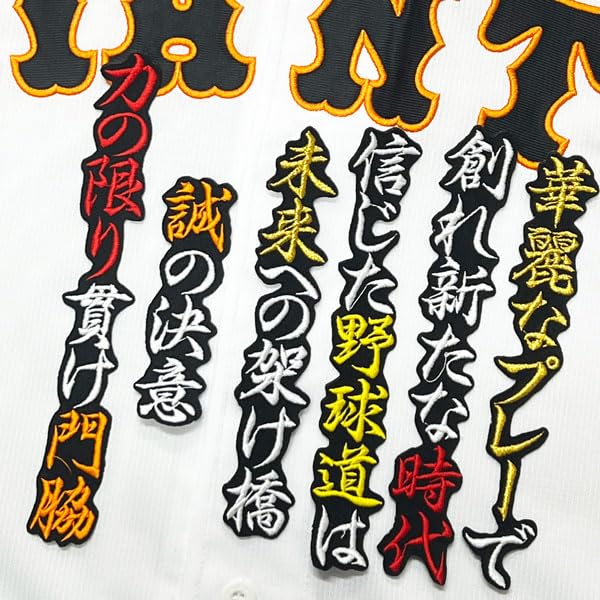 IANT
華麗なプレーで
創れ新たな時代
信じた野球道は
未来への架け橋
誠の決意
力の限り貫け門脇